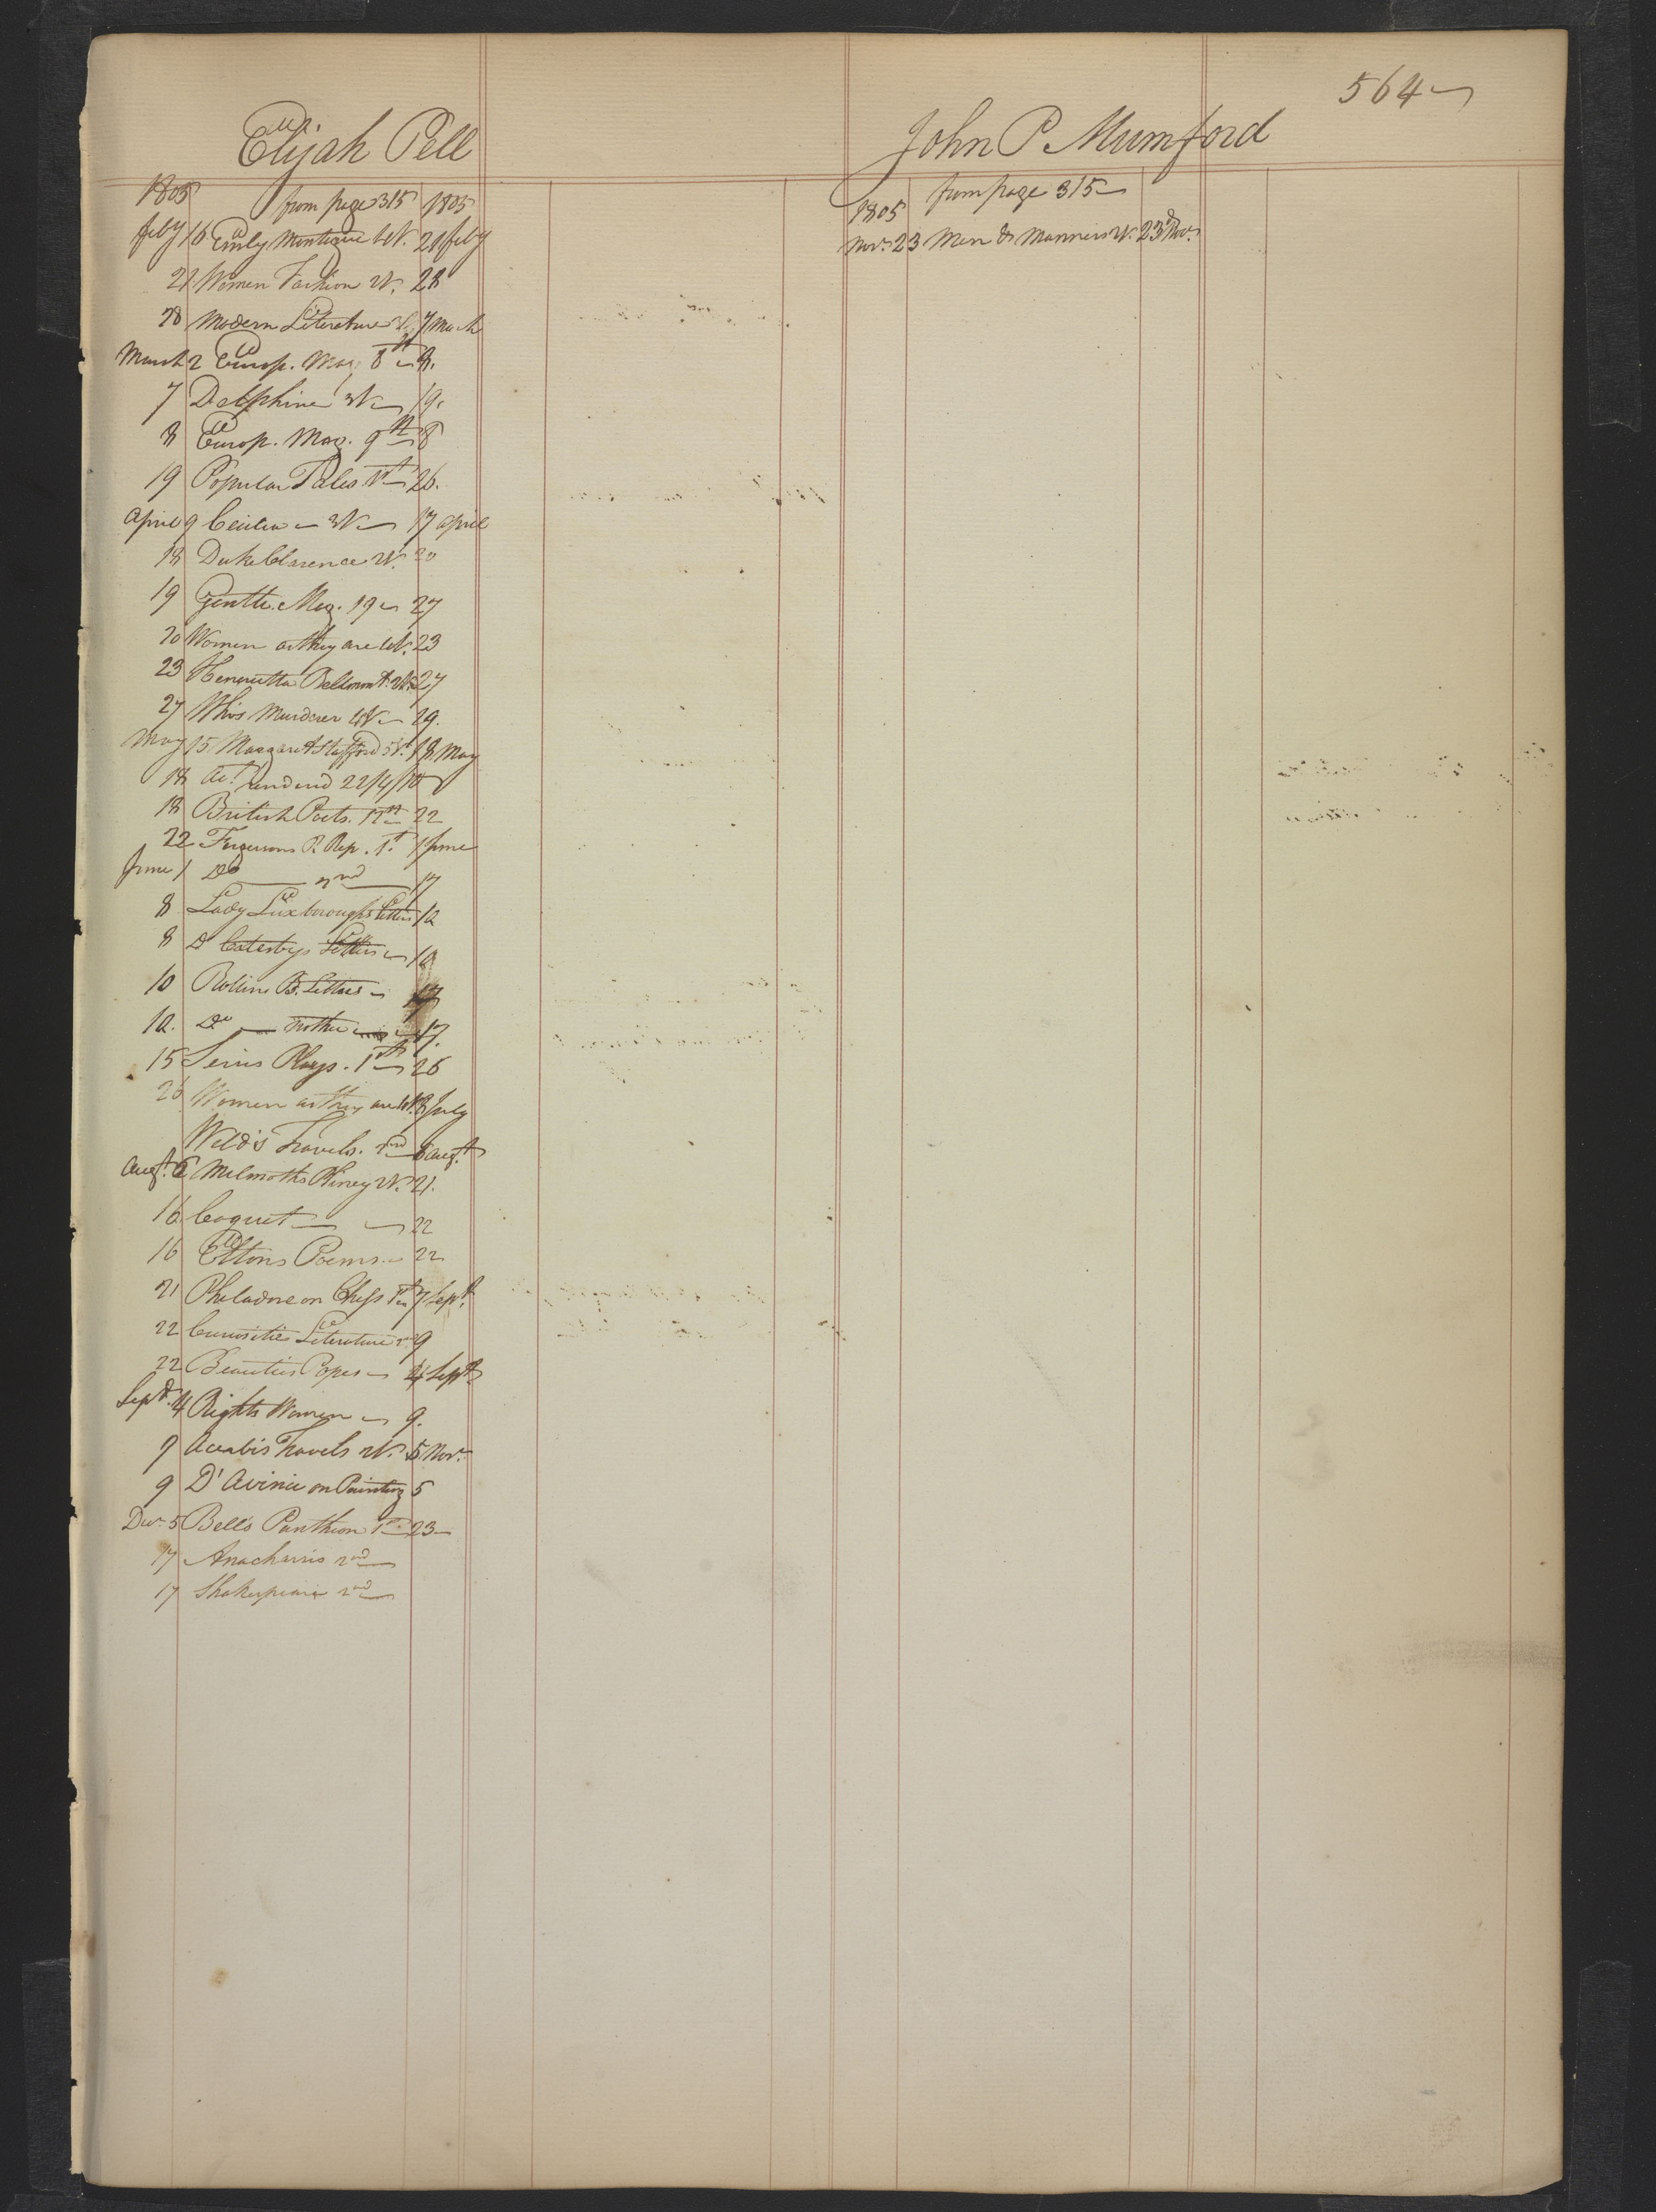 564
Elijah Pell
1805 from page 315 1805
feby 16 Emily Montague 4V. 21 feby
21 Women Fashion 2V. 28
28 Modern Literature 7 March
March 2 Europ. Mag 8th 8.
7 Delphine 3V 19.
8 Europ. Mag. 9th 8
19 Popular Tales 1st 26.
April 9 Cecilia 3V 17 April
18 Duke Clarence 2V. 20
19 Gentle. Mag. 19 27
20 Women as they are 4V. 23
23 Henrietta Bellmont. 2V. 27
27 Who's Murderer 4V 29.
May 15 Margaret Stafford 5V. 18 May
18 Act. rendered 22/4/10
18 British Poets. 22
22 Fergusons R. Rep. 1st 1 June
June 1 Do 2nd 17
8 Lady Luxboroughs Letters 12
8 Dr Catesbys Letters
10 Rollins B. Letters 17
12. Do 17.
15 Serius Plays. 26
26 Women as they are 4V. 8 July
Weld's Travels. 2nd 6 Augt.
Augt. 6 Melmoths Pliney 2V. 21.
16 Coquet 22
16 Eltons Poems. 22
21 Philadore on Chess 1st 7 Sept.
22 Curiosities Literature 2nd 9
22 Beauties Popes 4 Sept
Sept. 4 Rights Women 9.
9 Acerbis Travels 2V. 5 Nov.
9 D'Avinci on Painting 5
Dec. 5 Bell's Pantheon 1st 23
17 Anacharsis 2nd
17 Shakespeare 2nd
John P Mumford
1805 from page 315
Nov. 23 Men & Manners V. 23d Nov.